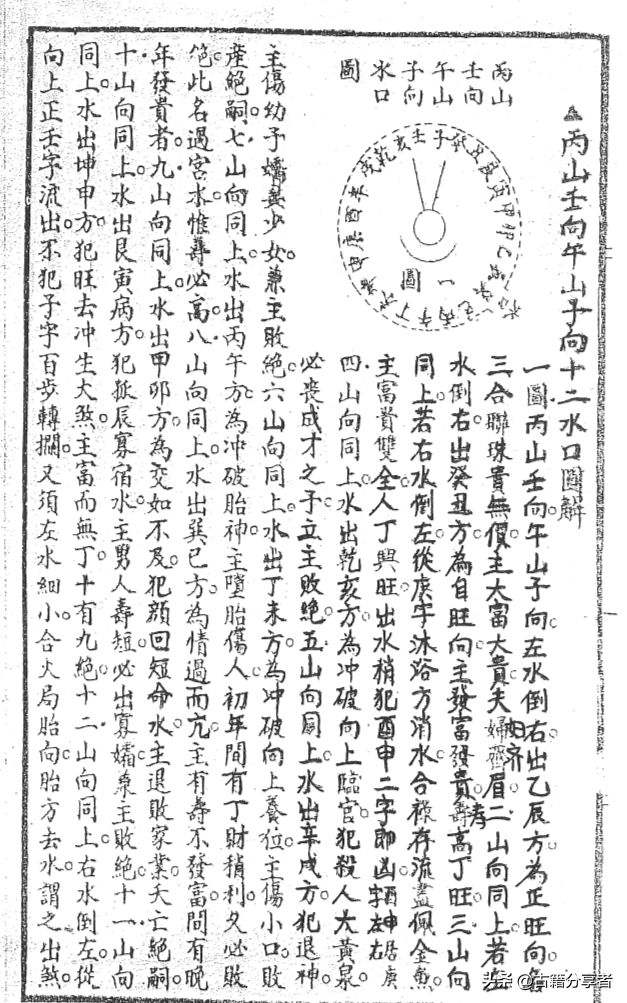 丙山壬向午山子向十二水口圖解
丙山
壬向
午山
子向
水口
圖
壬子癸丑艮寅甲卯乙
丁
庚酉
戌乾亥
一圖
一圖丙山壬向午山子向左水倒右出乙辰方為正旺向
三合聯珠貴無價主大富大貴夫婦齊眉二山向同上若左
水倒右出癸丑方為自旺向主發富發貴壽高丁旺三山向
同上若右水倒左從庚字沐浴方消水合祿存流盡佩金魚
主富貴雙全人丁興旺出水稍犯酉申二字即凶
四山向同上水出乾亥方為冲破向上臨官犯殺人大黃泉
必喪成才之子立主敗絕五山向同上水出辛戌方犯退神
主傷幼子孀與少女兼主敗絕六山向同上水出丁未方為冲破向上養位主傷小口敗
產絕嗣七山向同上水出丙午方為冲破胎神主墮胎傷人初年間有丁財稍利久必敗
絕此名過宮水惟壽必高八山向同上水出巽巳方為情過而亢主有壽不發富間有晚
年發貴者九山向同上水出甲卯方為交如不及犯顏回短命水主退敗家業夭亡絕嗣
十山向同上水出艮寅病方犯孤辰寡宿水主男人壽短必出寡孀兼主敗絕十一山向
同上水出坤申方犯旺去冲生大煞主富而無丁十有九絕十二山向同上右水倒左從
向上正壬字流出不犯子字百步轉攔又須左水細小合火局胎向胎方去水謂之出煞
头条@古籍分享者